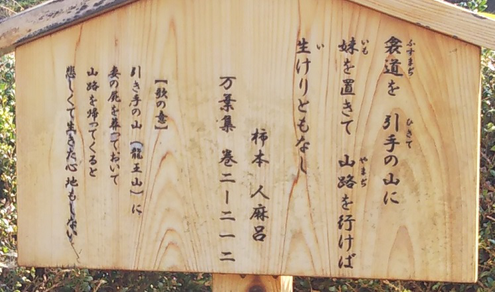 衾道を 引手の山に
妹を置きて 山路を行けば
生けりともなし
柿本 人麻呂
万葉集 巻二ー二一二
【歌の意】
引き手の山（龍王山）に
妻の屍を葬っておいて
山路を帰ってくると
悲しくて生きた心地もしない。